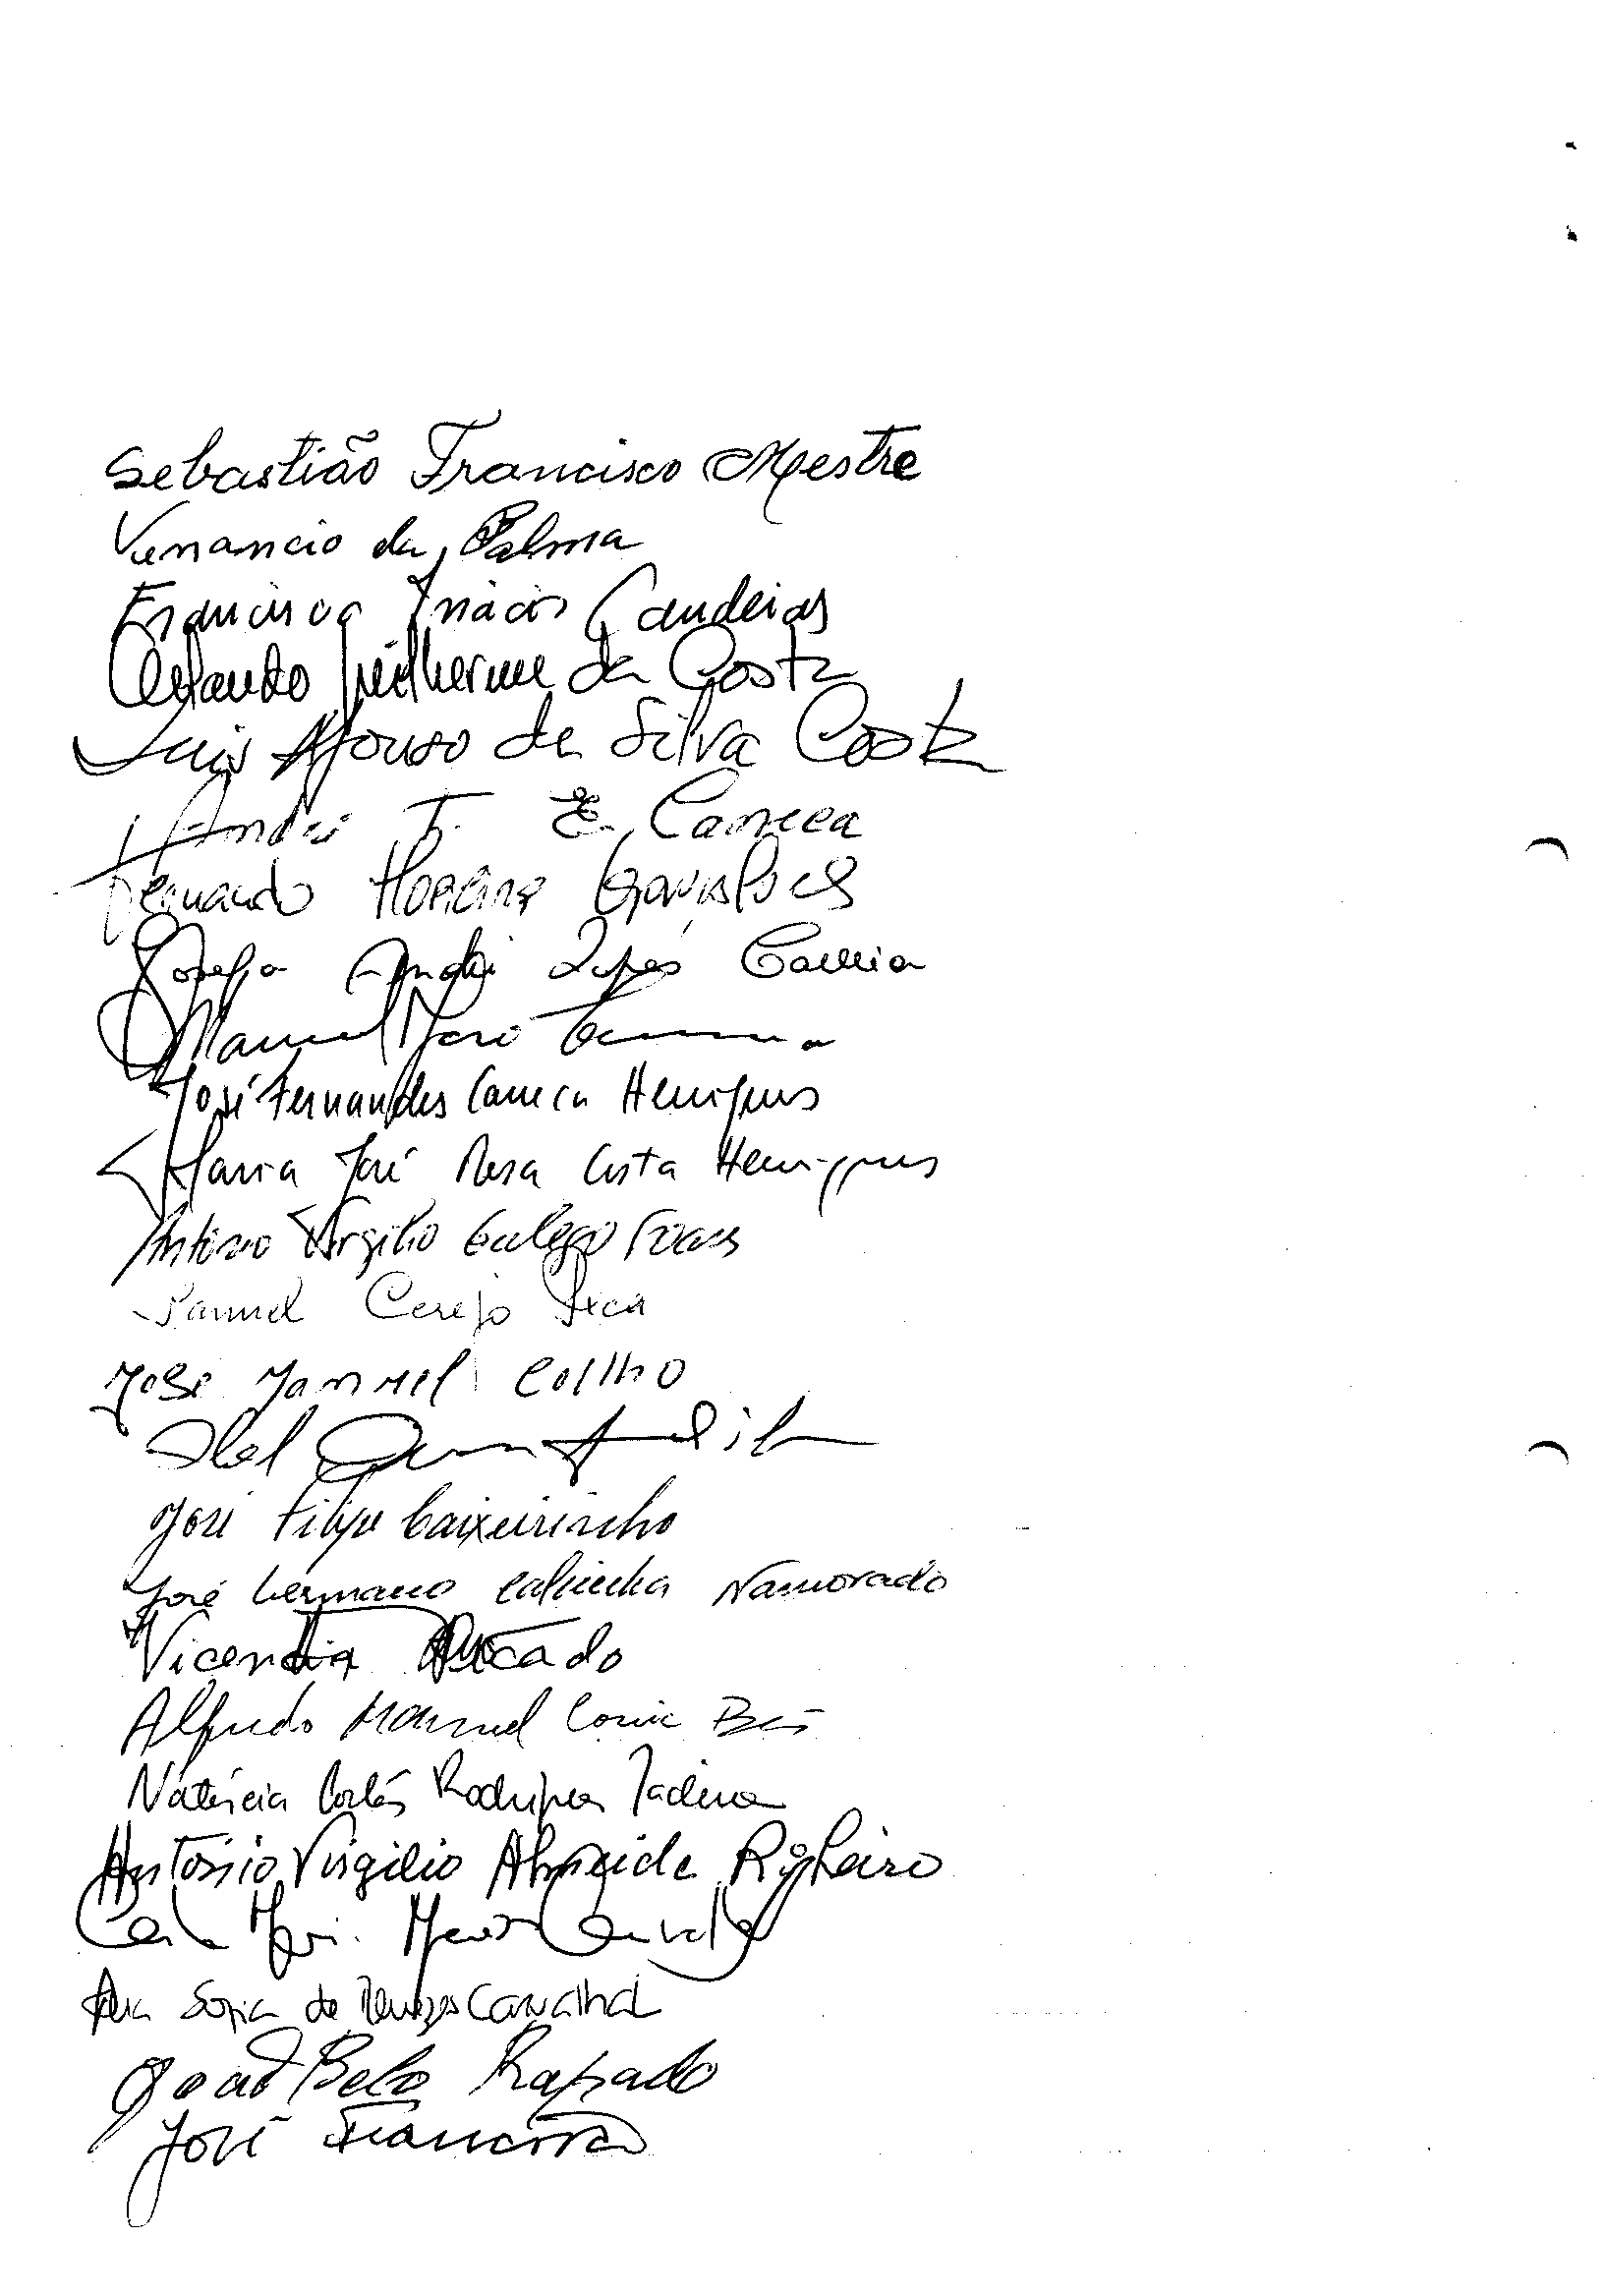 Sebastião Francisco Mestre
Venancio da Palma
Francisco Inácio Candeias
Orlando Guilherme da Costa
Luis Afonso da Silva Costa
André F. E. Caneca
Fernando Gonçalves
Josefa André Lopes
Manuel
José Fernandes Caneca Henriques
Maria José Rosa Costa Henriques
António Virgilio Galego
Manuel Cerejo
José Manuel Coelho
Abel
José Filipe Caixeirinho
José Germano Calhinha Namorado
Vicencia Picado
Alfredo Manuel
Natércia Cortês Rodrigues
António Virgilio Almeida
Carla
Ana Sofia de Menezes Carvalhal
João Belo Rapado
José Francisco